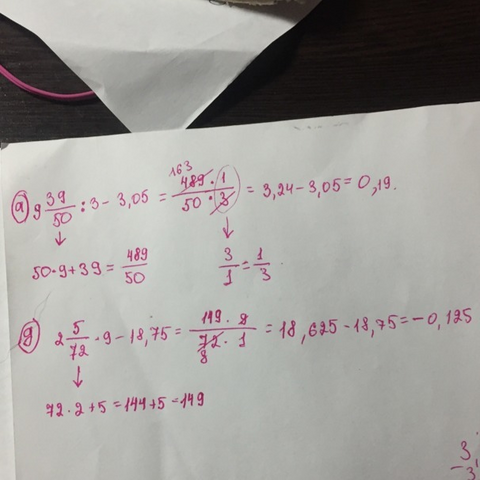 163
а) 9 39/50 : 3 - 3,05 = 489 · 1 / 50 · 3 = 3,24 - 3,05 = 0,19.
↓ ↓
50·9+39 = 489/50 3/1 = 1/3
д) 2 5/72 · 9 - 18,75 = 149 · 9 / 72 · 1 = 18,625 - 18,75 = -0,125
8
↓
72·2+5=144+5=149
3,
-3,